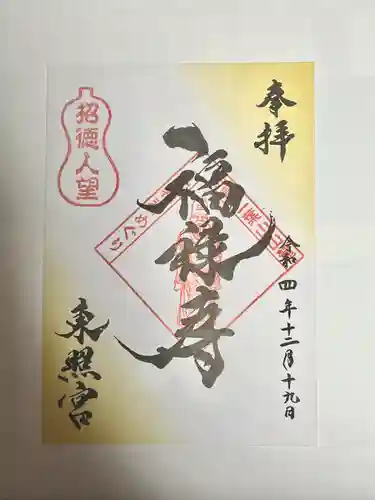 奉拝
令和四年十二月十九日
福禄寿
招徳人望
めぐり
東照宮